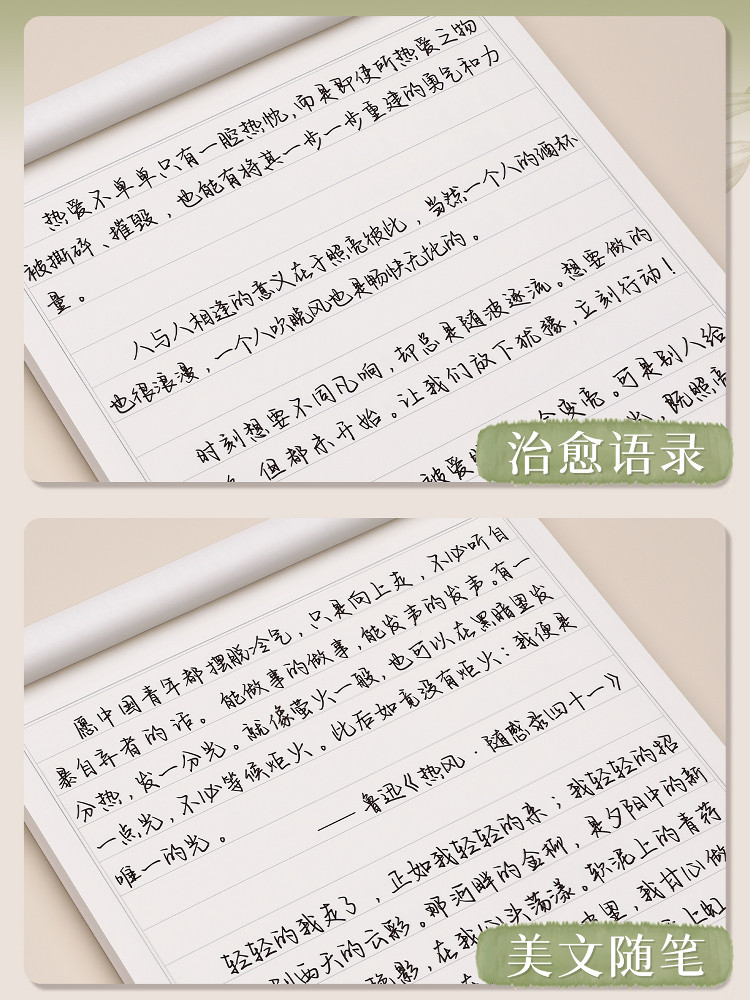 热爱不单单只有一腔热忱,而是即使所热爱之物
被撕碎、摧毁，也能有将其一步一步重建的勇气和力
量。
人与人相逢的意义在于照亮彼此，当然一个人的酒杯
也很浪漫，一个人吹晚风也是畅快无比的。
时刻想要不同凡响，却总是随波逐流。想要做的
但都未开始。让我们放下犹豫,立刻行动！
变亮。可是别人给
被爱 既照亮
治愈语录
愿中国青年都摆脱冷气，只是向上走，不必听自
暴自弃者的话。能做事的做事,能发声的发声。有一
分热，发一分光。就像萤火一般，也可以在黑暗里发
一点光，不必等候炬火。此后如竟没有炬火：我便是
唯一的光。 ——鲁迅《热风·随感录四十一》
轻轻的我走了，正如我轻轻的来；我轻轻的招
西天的云彩。那河畔的金柳，是夕阳中的新
艳影，在我的心头荡漾。软泥上的青荇
里，我甘心做
上虹
美文随笔